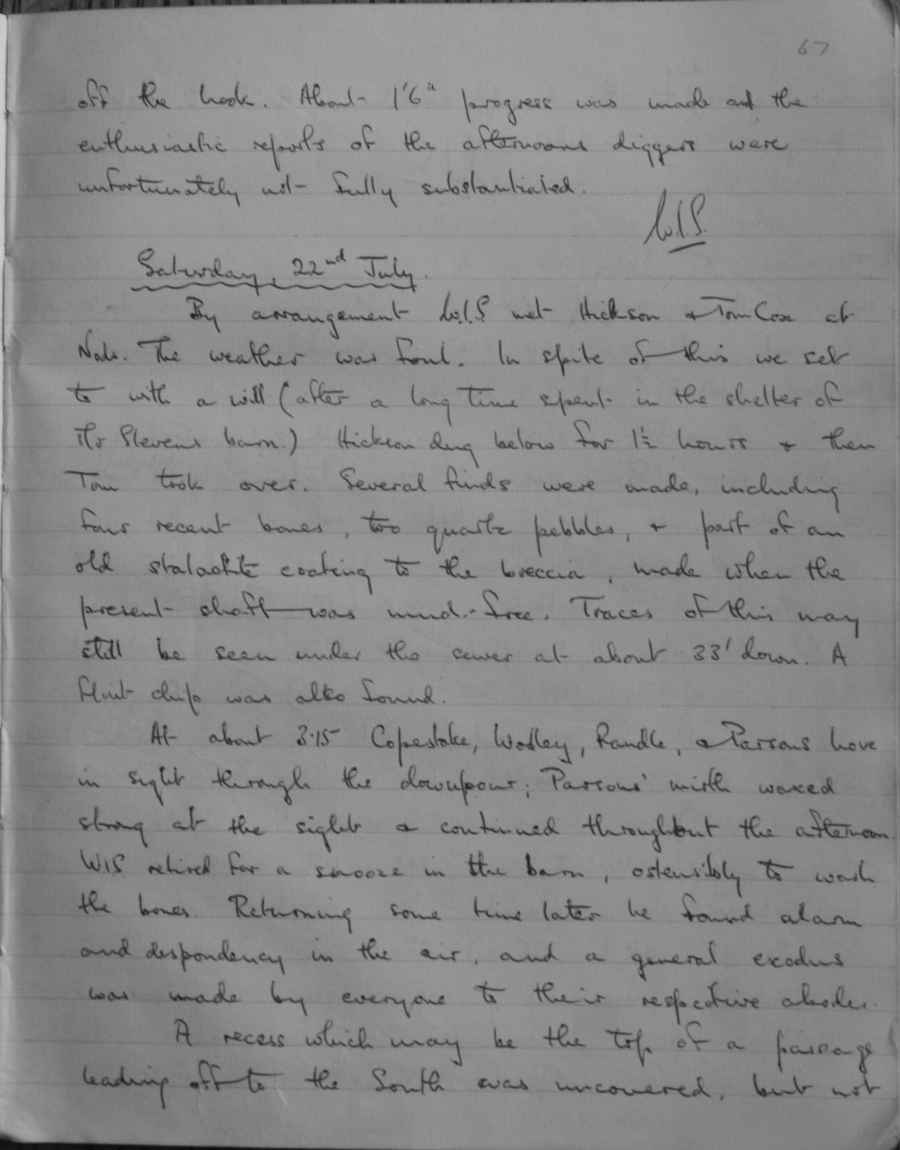 67
off the hook. About 1'6" progress was made and the
enthusiastic reports of the afternoons diggers were
unfortunately not fully substantiated.
W.I.S.
Saturday, 22nd July.
By arrangement W.I.S met Hickson & Tom Cox at
Nods. The weather was foul. In spite of this we set
to with a will (after a long time spent in the shelter of
Mr Stevens barn.) Hickson dug below for 1½ hours & then
Tom took over. Several finds were made, including
four recent bones, two quartz pebbles, & part of an
old stalactite coating to the breccia, made when the
present shaft was mud-free. Traces of this may
still be seen under the at about 33' down. A
flint chip was also found.
At about 3.15 Copestake, Wodley, Randle, & Parsons hove
in sight through the downpour; Parsons' mirth waxed
strong at the sight & continued throughout the afternoon.
WIS retired for a snooze in the barn, ostensibly to wash
the bones. Returning some time later he found alarm
and despondency in the air, and a general exodus
was made by everyone to their respective abodes.
A recess which may be the top of a passage
leading off to the South was uncovered, but not